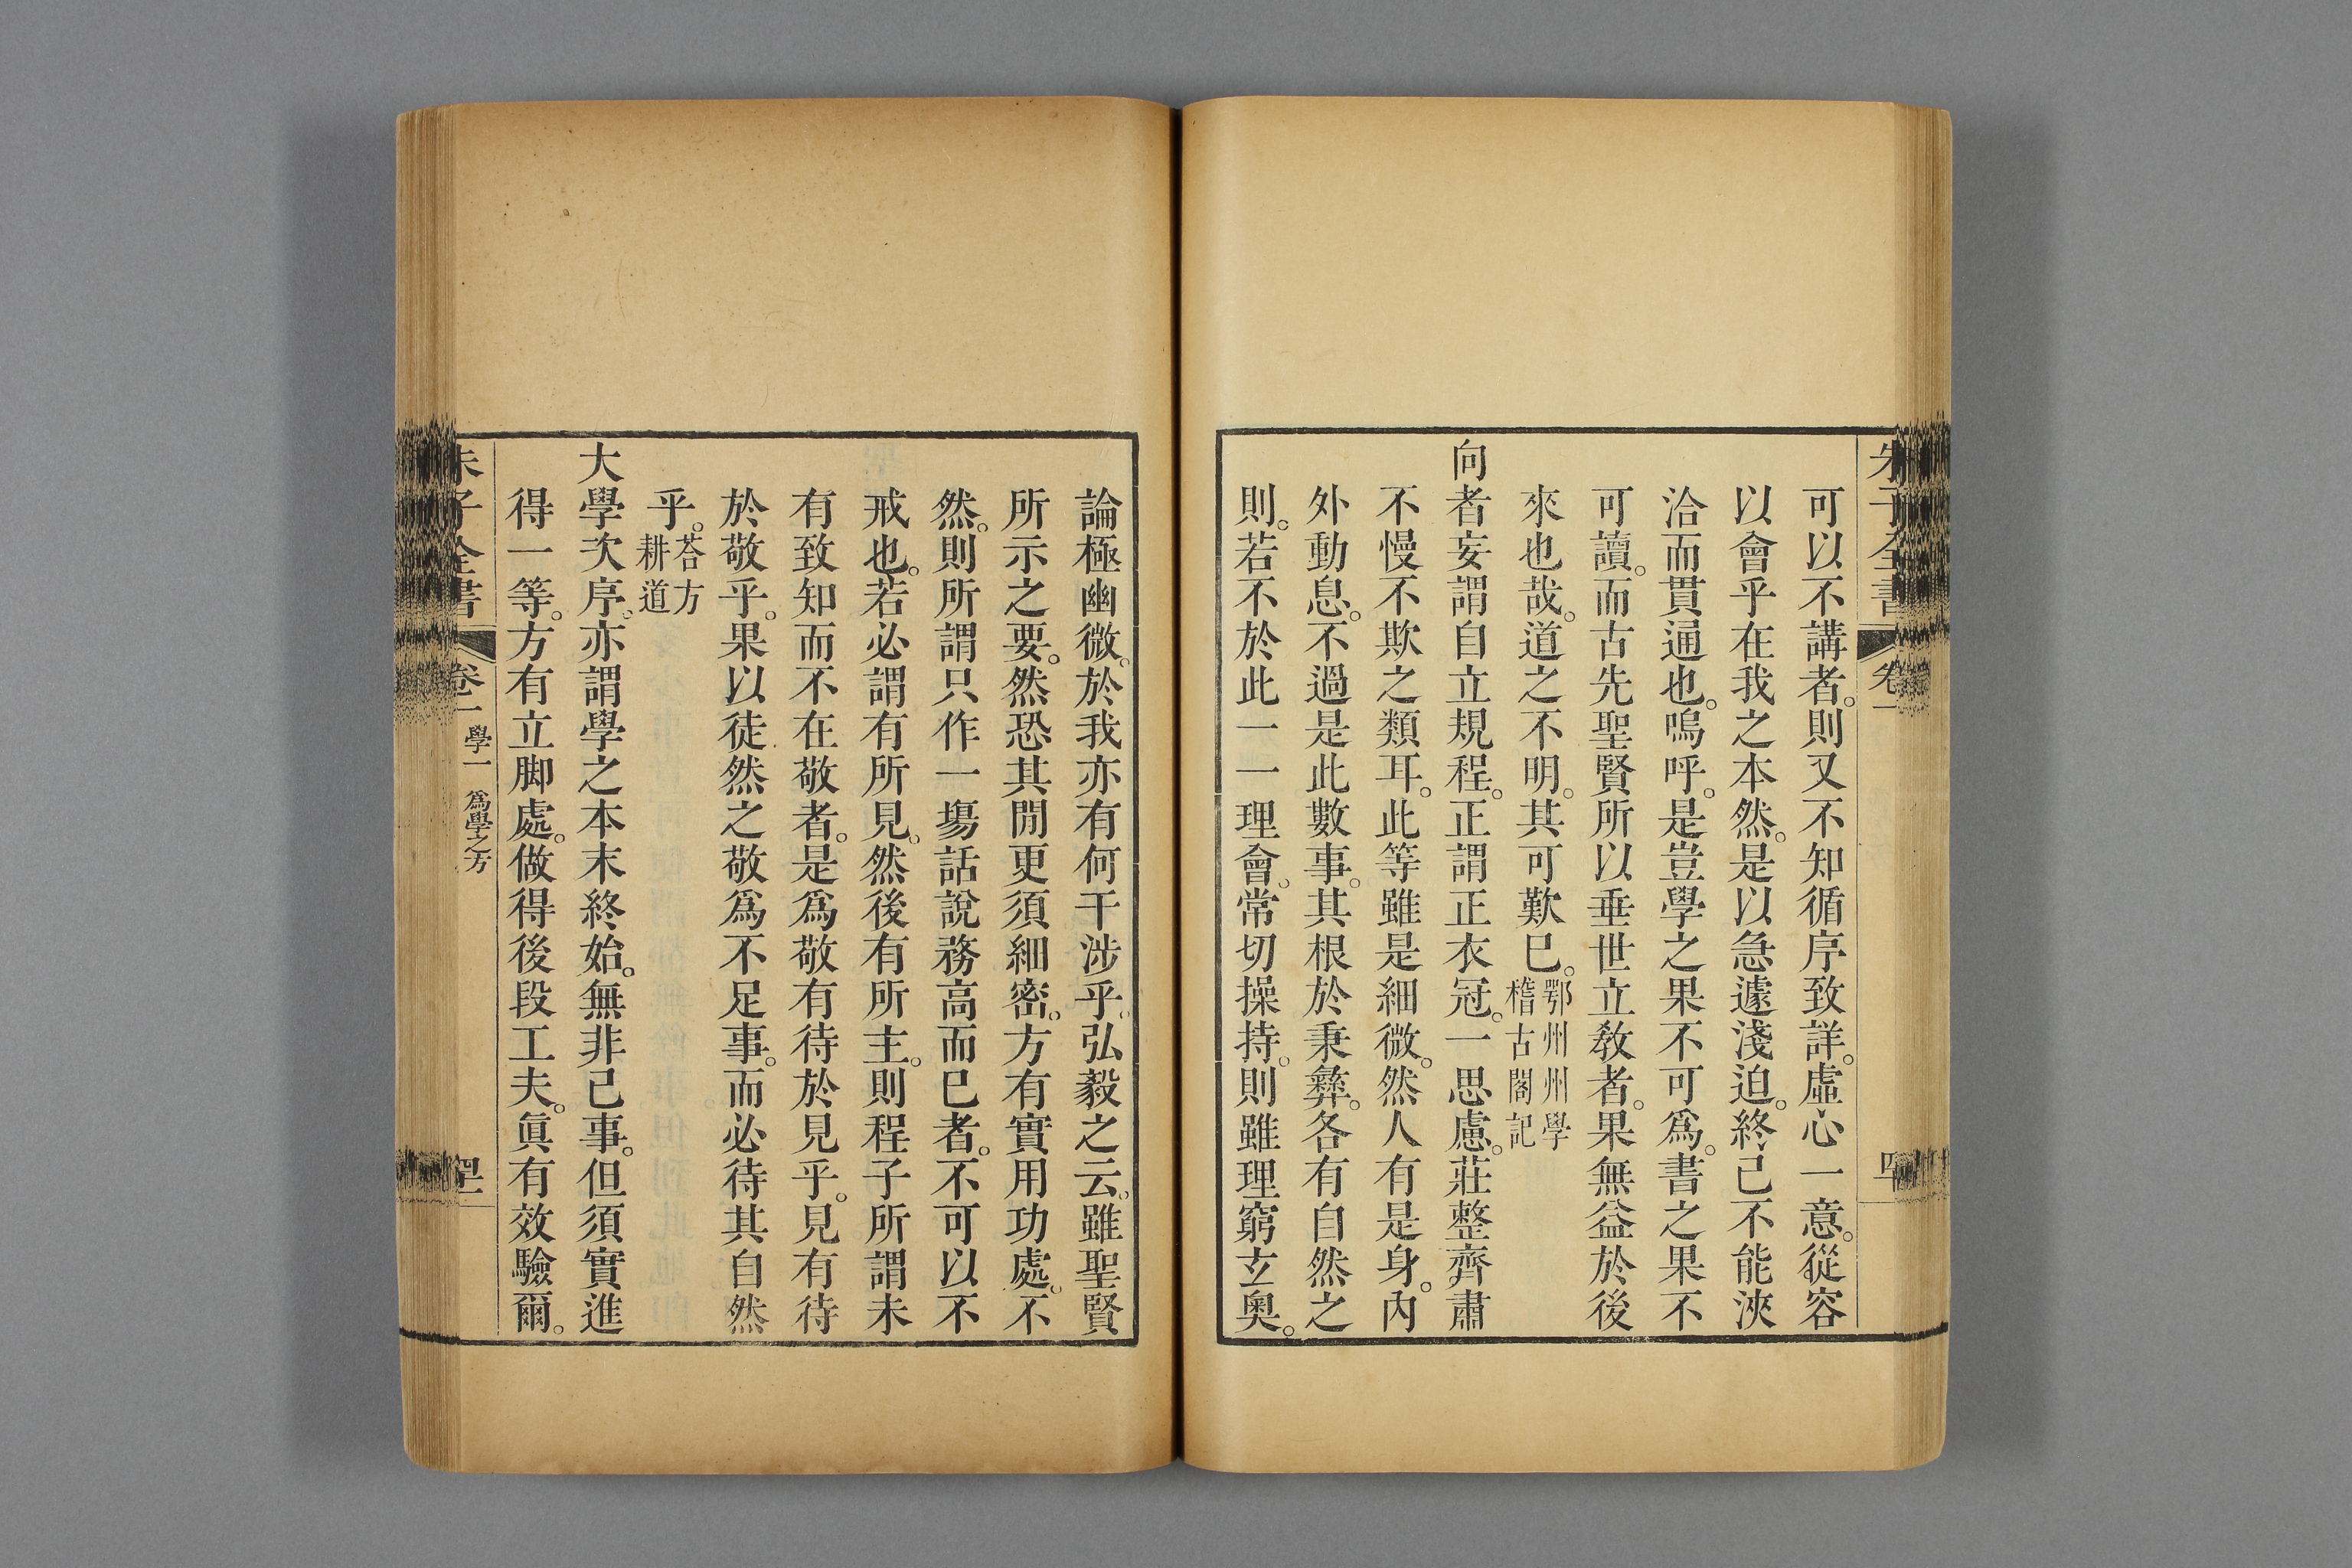 朱子全書 卷一
可以不講者。則又不知循序致詳。虛心一意。從容
以會乎在我之本然。是以急遽淺迫。終已不能浹
洽而貫通也。嗚呼。是豈學之果不可爲。書之果不
可讀。而古先聖賢所以垂世立敎者。果無益於後
來也哉。道之不明。其可歎已。鄂州州學
稽古閣記
向者妄謂自立規程。正謂正衣冠。一思慮。莊整齊肅
不慢不欺之類耳。此等雖是細微。然人有是身。內
外動息。不過是此數事。其根於秉彝。各有自然之
則。若不於此一一理會。常切操持。則雖理窮玄奧。
論極幽微。於我亦有何干涉乎。弘毅之云。雖聖賢
所示之要。然恐其閒更須細密。方有實用功處。不
然。則所謂只作一塲話說務高而已者。不可以不
戒也。若必謂有所見。然後有所主。則程子所謂未
有致知而不在敬者。是爲敬有待於見乎。見有待
於敬乎。果以徒然之敬爲不足事。而必待其自然
乎。荅方
耕道
大學次序。亦謂學之本末終始。無非己事。但須實進
得一等。方有立脚處。做得後段工夫。眞有效驗爾。
朱子全書 卷一 學一 爲學之方